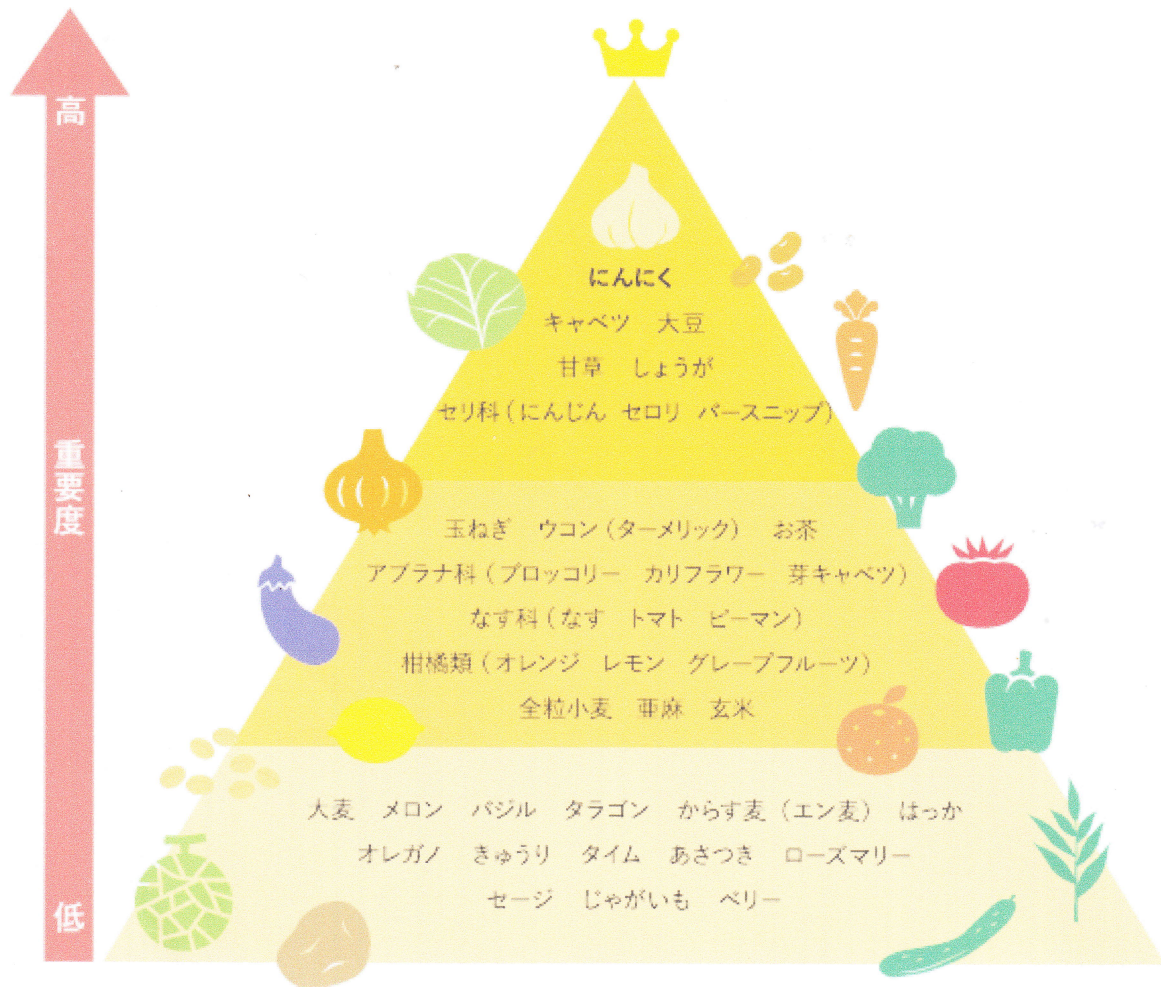 高
重要度
低
にんにく
キャベツ 大豆
甘草 しょうが
セリ科(にんじん セロリ パースニップ)
玉ねぎ ウコン(ターメリック) お茶
アブラナ科(ブロッコリー カリフラワー 芽キャベツ)
なす科(なす トマト ピーマン)
柑橘類(オレンジ レモン グレープフルーツ)
全粒小麦 亜麻 玄米
大麦 メロン バジル タラゴン からす麦(エン麦) はっか
オレガノ きゅうり タイム あさつき ローズマリー
セージ じゃがいも ベリー